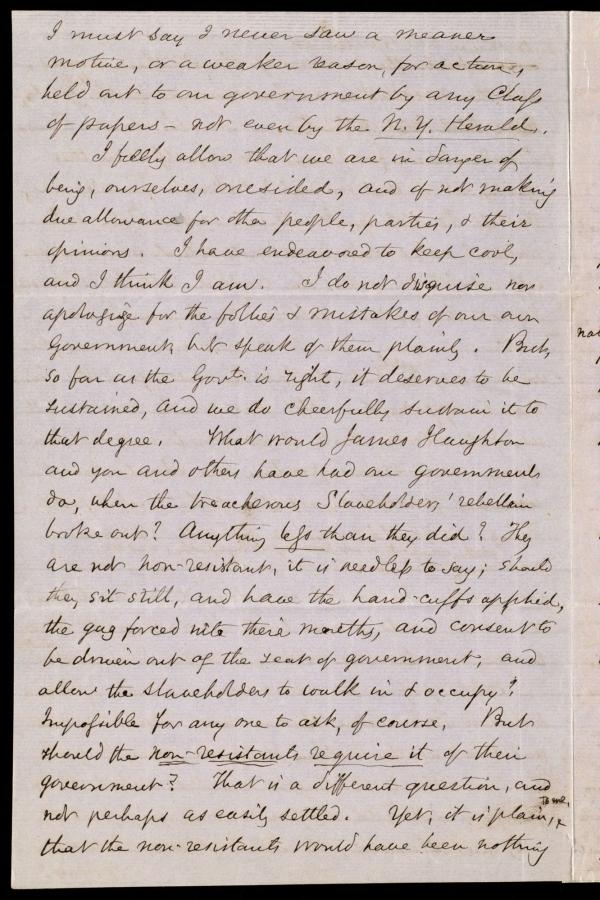 I must say I never saw a meaner
motive, or a weaker reason, for action,
held out to our government by any Class
of papers – not even by the N. Y. Herald.
I fully allow that we are in danger of
being, ourselves, onesided, and of not making
due allowance for other people, parties, & their
opinions. I have endeavored to keep cool,
and I think I am. I do not disguise nor
apologize for the follies & mistakes of our own
Government, but speak of them plainly. But,
so far as the Govt. is right, it deserves to be
sustained, and we do cheerfully sustain it to
that degree. What would James Haughton
and you and others have had our government
do, when the treacherous Slaveholders' rebellion
broke out? Anything less than they did? They
are not non-resistant, it is needless to say; should
they sit still, and have the hand-cuffs applied,
the gag forced into their mouths, and consent to
be driven out of the seat of government, and
allow the slaveholders to walk in & occupy?
Impossible for any one to ask, of course. But
should the non-resistants require it of their
government? That is a different question, and
not perhaps as easily settled. Yet, it is plain, to me,
that the non-resistants would have been nothing